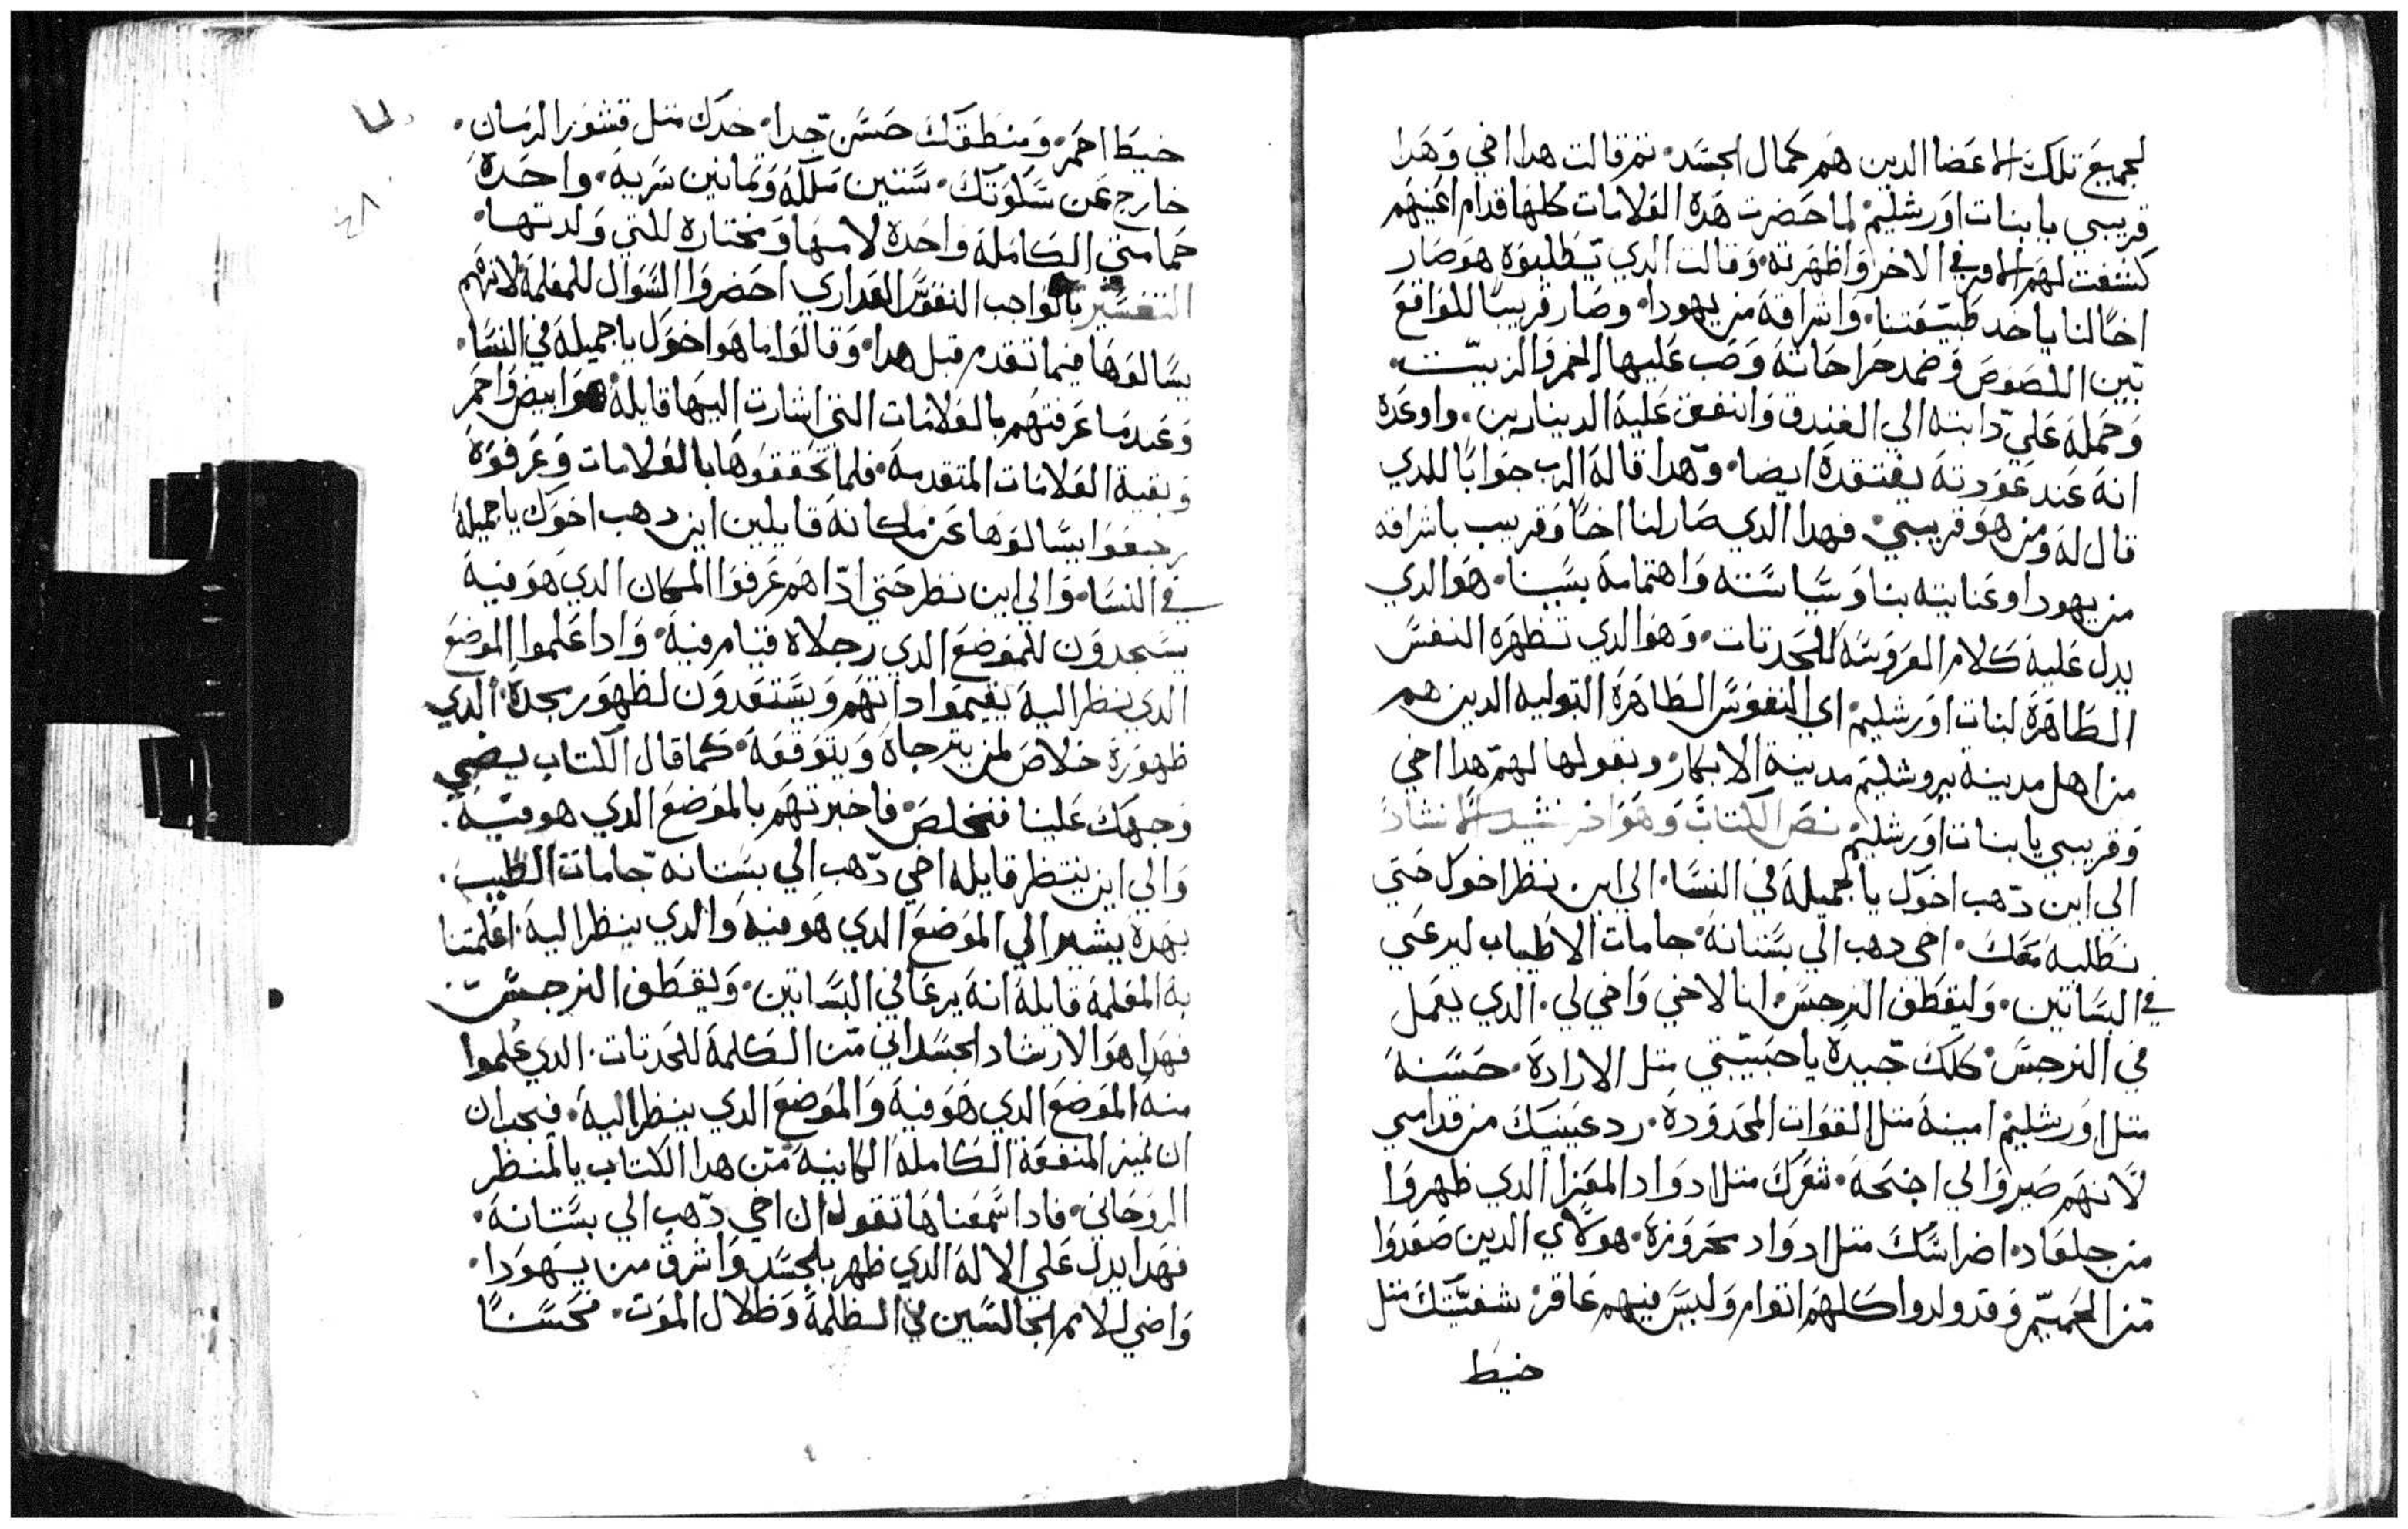 لجميع تلك الاعضا الدين هم كمال الجسد. تم قالت هدا اخي وهدا
قريبي يا بنات اورشليم لما حضرت هده العلامات كلها قدام اعينهم
كشفت لهم الامر في الاخر واظهرته. وقالت الدي تطلبوه هو صار
اخا لنا ياخد طبيعتنا. واشراقه من يهودا. وصار قريبا للواقع
بين اللصوص وضمد جراحاته وصب عليها الخمر والزيت.
وحمله علي دابته الي الفندق وانفق عليه الدينارين. واوعده
انه عند عودته يفتقده ايضا. وهدا قاله الرب جوابا للدي
قال له ومن هو قريبي. فهدا الدي صار لنا اخا وقريب باشراقه
من يهودا وعنايته بنا وسياسته واهتمامه بسببنا. هو الدي
يدل عليه كلام العروسه للحدتات. وهو الدي تظهره النفس
الطاهره لبنات اورشليم اي النفوس الطاهره البتوليه الدين هم
من اهل مدينة يروشليم مدينة الابكار وبقولها لهم هدا اخي
وقريبي يا بنات اورشليم نص الكتاب وهو اخر نشيد الانشاد
الي اين دهب اخوك يا الجميله في النسا. الي اين نظر اخوك حتي
نطلبه معك. اخي دهب الي بستانه جامات الاطياب ليرعي
في البساتين. وليقطف النرجس انا لاخي واخي لي. الدي يعمل
في النرجس كلك جيده يا حبيبتي متل الاراده. حسنه
متل اورشليم امينه متل القوات المحدوده. رد عينيك من قدامي
لانهم صيروا لي اجنحه. شعرك متل ادواد المعزا الدي ظهروا
من جلعاد. اضراسك متل ادواد مجروزه. هولاي الدين صعدوا
من الحميم وقد ولدوا كلهم اتوام وليس فيهم عاقر شفتيك متل
خيط
خيط احمر. ومنطقك حسن جدا. خدك متل قشور الرمان.
خارج عن سكوتك. ستين ملكه وتمانين سريه. واحده
حمامتي الكامله واحده لامها ومختاره للتي ولدتها.
التفسير بالواجب النفوس العداري احضروا السوال للمعلمه لانهم
يسالوها فيما تقدم قبل هدا. وقالوا ما هو اخوك يا جميله في النسا.
وعندما عرفتهم بالعلامات التي اشارت اليها قايله هو ابيض واحمر
وبقية العلامات المتقدمه. فلما تحققوها بالعلامات وعرفوه
رجعوا يسالوها عن مكانه قايلين اين دهب اخوك يا جميله
في النسا. والي اين نظر حتي ادا هم عرفوا المكان الدي هو فيه
يسجدون للموضع الدي رجلاه قيام فيه. وادا علموا الموضع
الدي ينظر اليه يقيموا داتهم ويستعدون لظهور مجده. الدي
ظهوره خلاص لمن يترجاه ويتوقعه. كما قال الكتاب يضي
وجهك علينا فنخلص فاخبرتهم بالموضع الدي هو فيه.
والي اين ينتظر قايله اخي دهب الي بستانه جامات الطيب.
بهده يشير الي الموضع الدي هو فيه والدي ينظر اليه. اعلمتنا
به المعلمه قايله انه يرعا في البساتين. ويقطف النرجس
فهدا هو الارشاد الجسداني من الكلمه للحدتات. الدي علموا
منه الموضع الدي هو فيه والموضع الدي ينظر اليه. فيجب ان
ان نميز المنفعه الكامله الكاينه من هدا الكتاب بالمنظر
الروحاني. فادا سمعناها تقول ان اخي دهب الي بستانه.
فهدا يدل علي الاله الدي ظهر بالجسد واشرق من يهودا.
واضي للامم الجالسين في الظلمه وظلال الموت. فحسنا